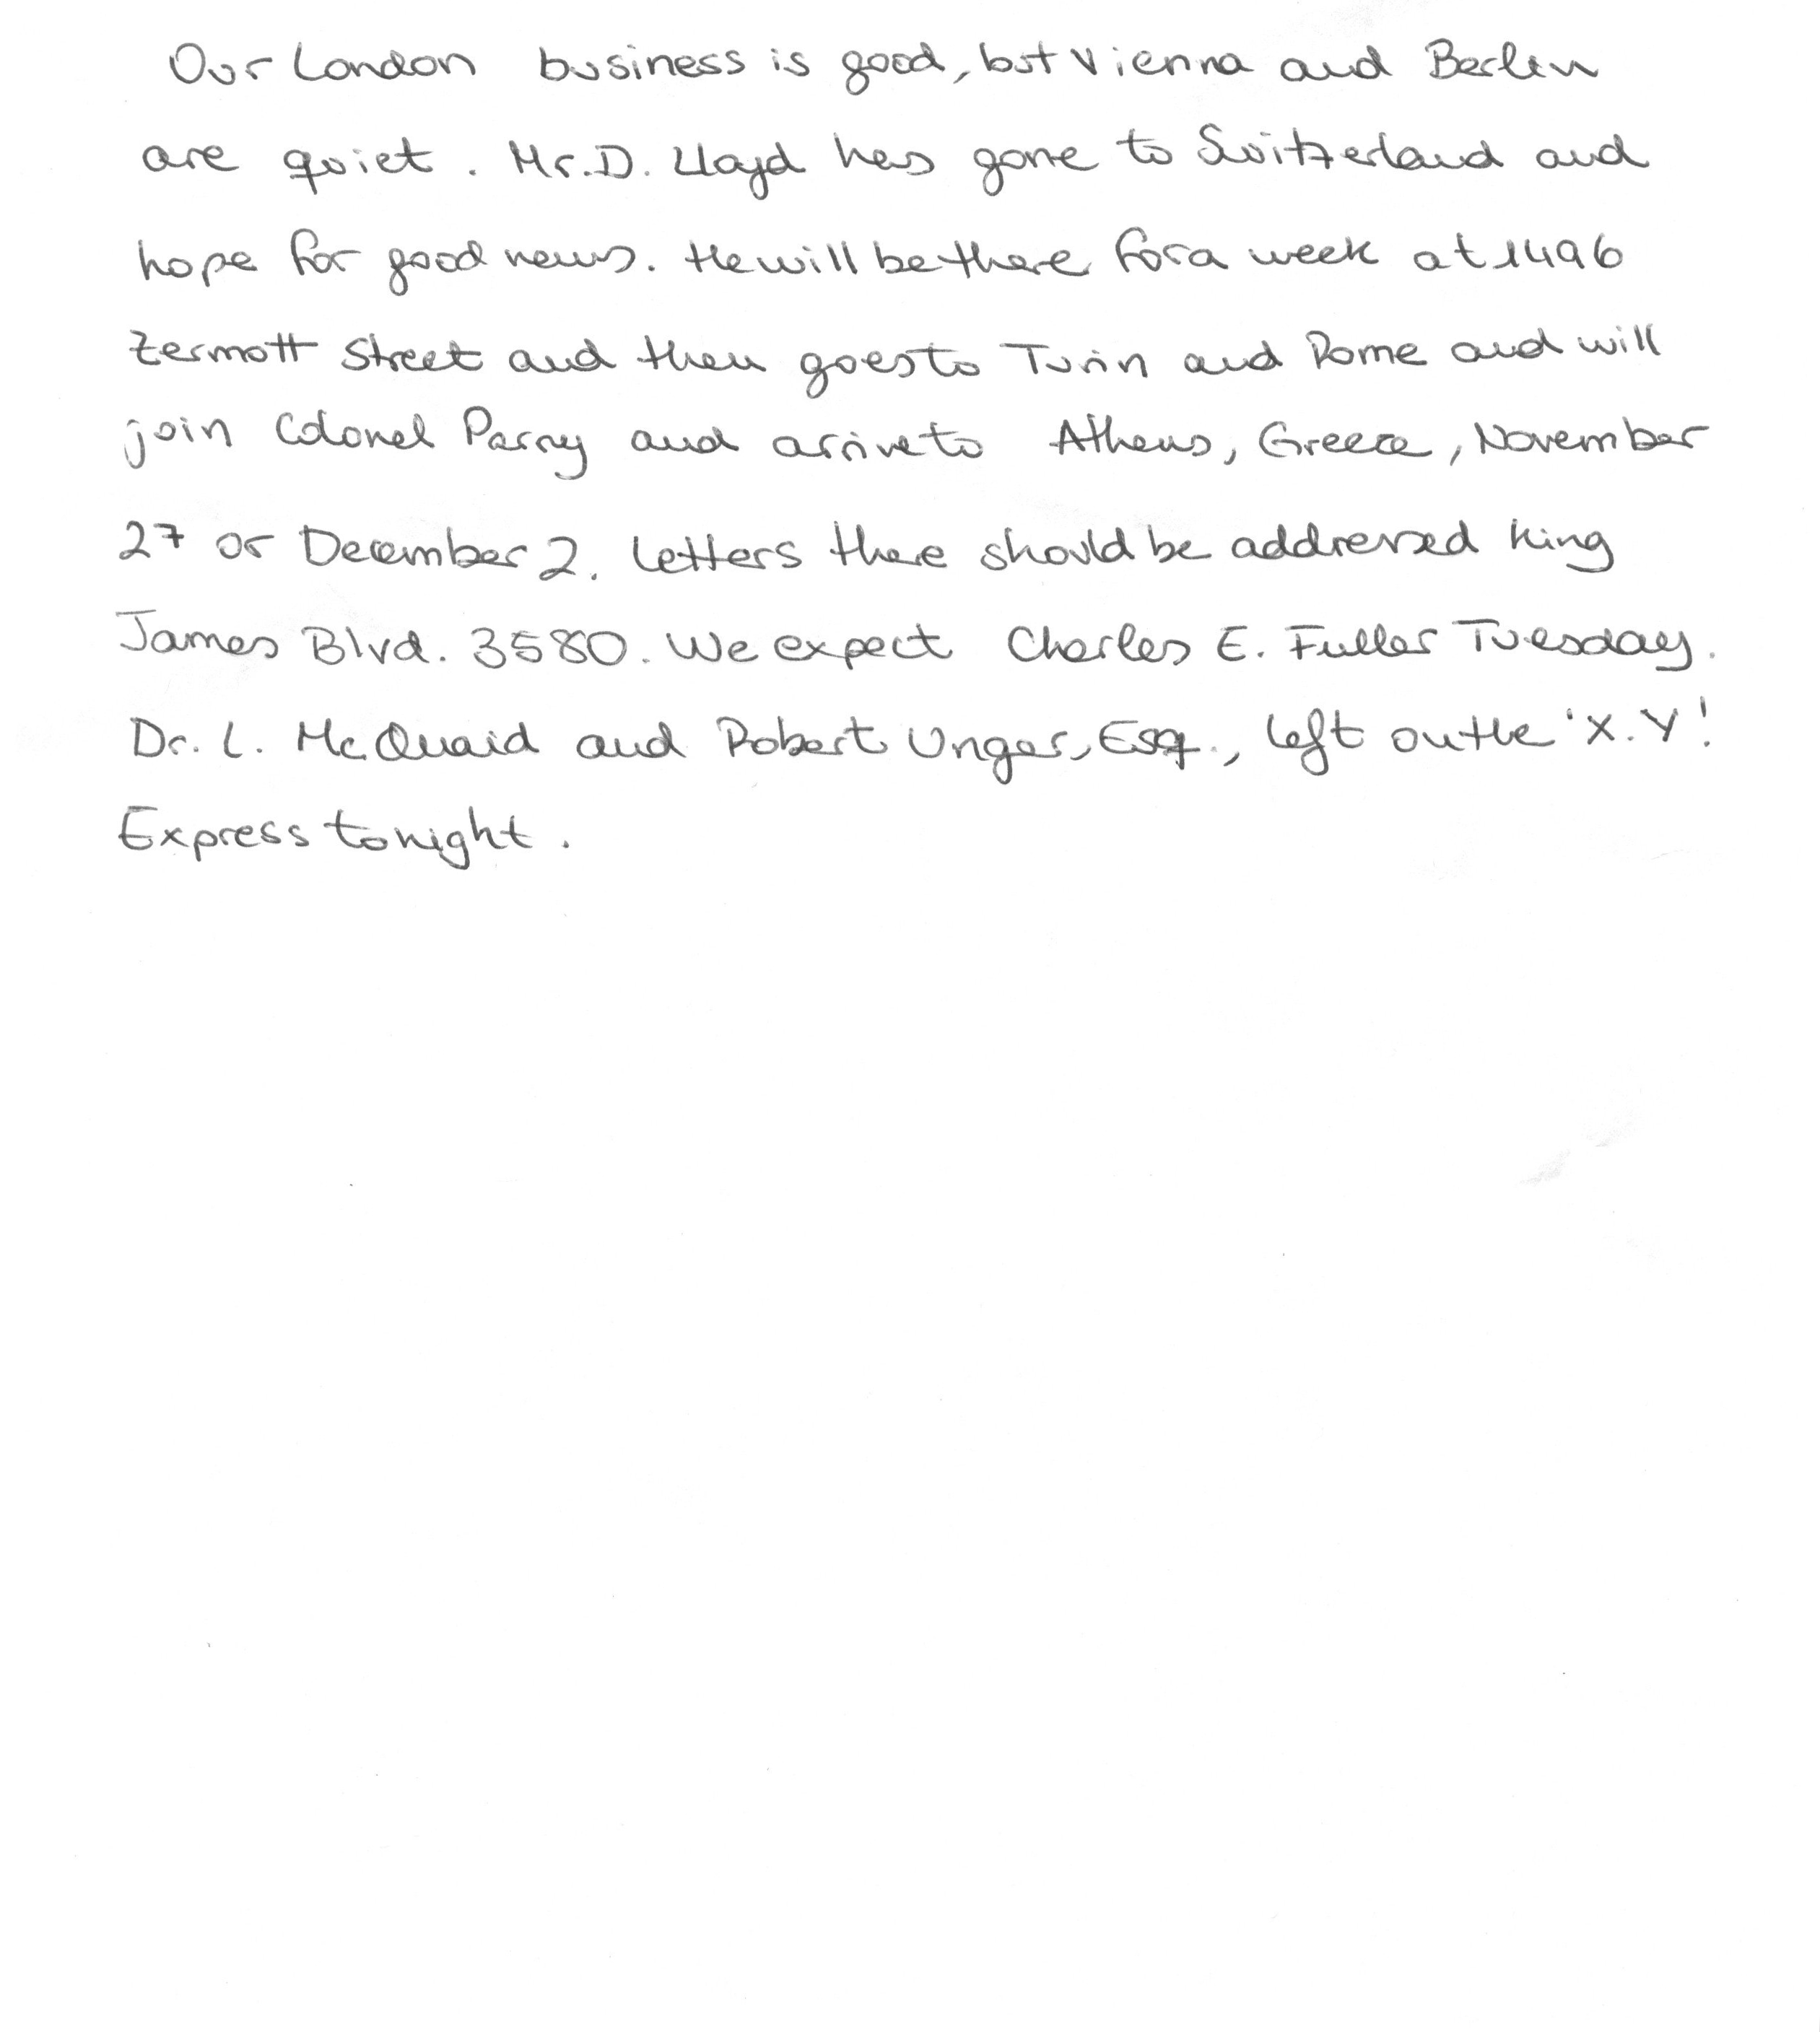 Our London business is good, but Vienna and Berlin
are quiet. Mr. D. Lloyd has gone to Switzerland and
hope for good news. He will be there for a week at 1496
Zermott Street and then goes to Turin and Rome and will
join Colonel Parry and arrive to Athens, Greece, November
27 or December 2. Letters there should be addressed King
James Blvd. 3580. We expect Charles E. Fuller Tuesday.
Dr. L. McQuaid and Robert Unger, Esq., left on the 'X.Y.'
Express tonight.